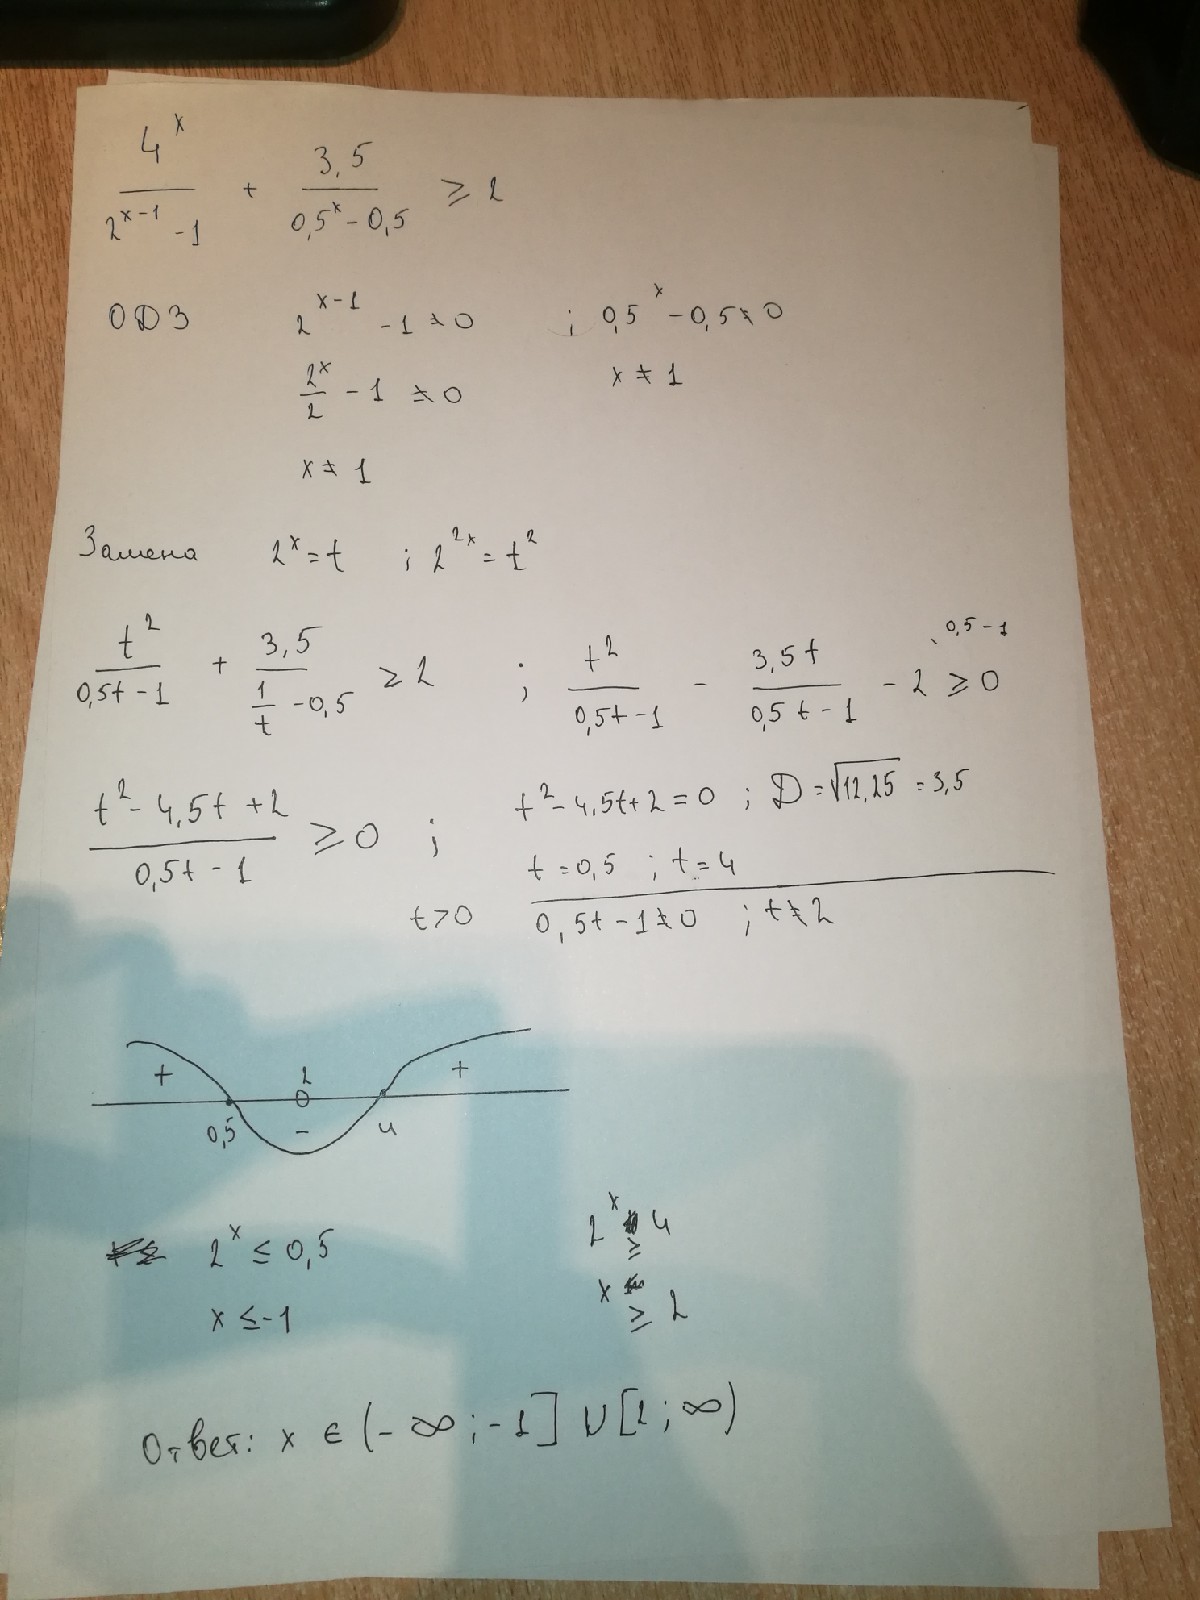 4^x / (2^(x-1) - 1) + 3,5 / (0,5^x - 0,5) ≥ 2
ОДЗ 2^(x-1) - 1 ≠ 0 ; 0,5^x - 0,5 ≠ 0
2^x / 2 - 1 ≠ 0 x ≠ 1
x ≠ 1
Замена 2^x = t ; 2^(2x) = t^2
t^2 / (0,5t - 1) + 3,5 / (1/t - 0,5) ≥ 2 ; t^2 / (0,5t - 1) - 3,5t / (0,5t - 1) - 2 ≥ 0 \ 0,5 - 1
(t^2 - 4,5t + 2) / (0,5t - 1) ≥ 0 ; t^2 - 4,5t + 2 = 0 ; D = √12,25 = 3,5
t = 0,5 ; t = 4
t > 0 0,5t - 1 ≠ 0 ; t ≠ 2
+ 2 +
0,5 - 4
2^x ≤ 0,5 2^x ≥ 4
x ≤ -1 x ≥ 2
Ответ: x ∈ (-∞ ; -1] ∪ [2 ; ∞)